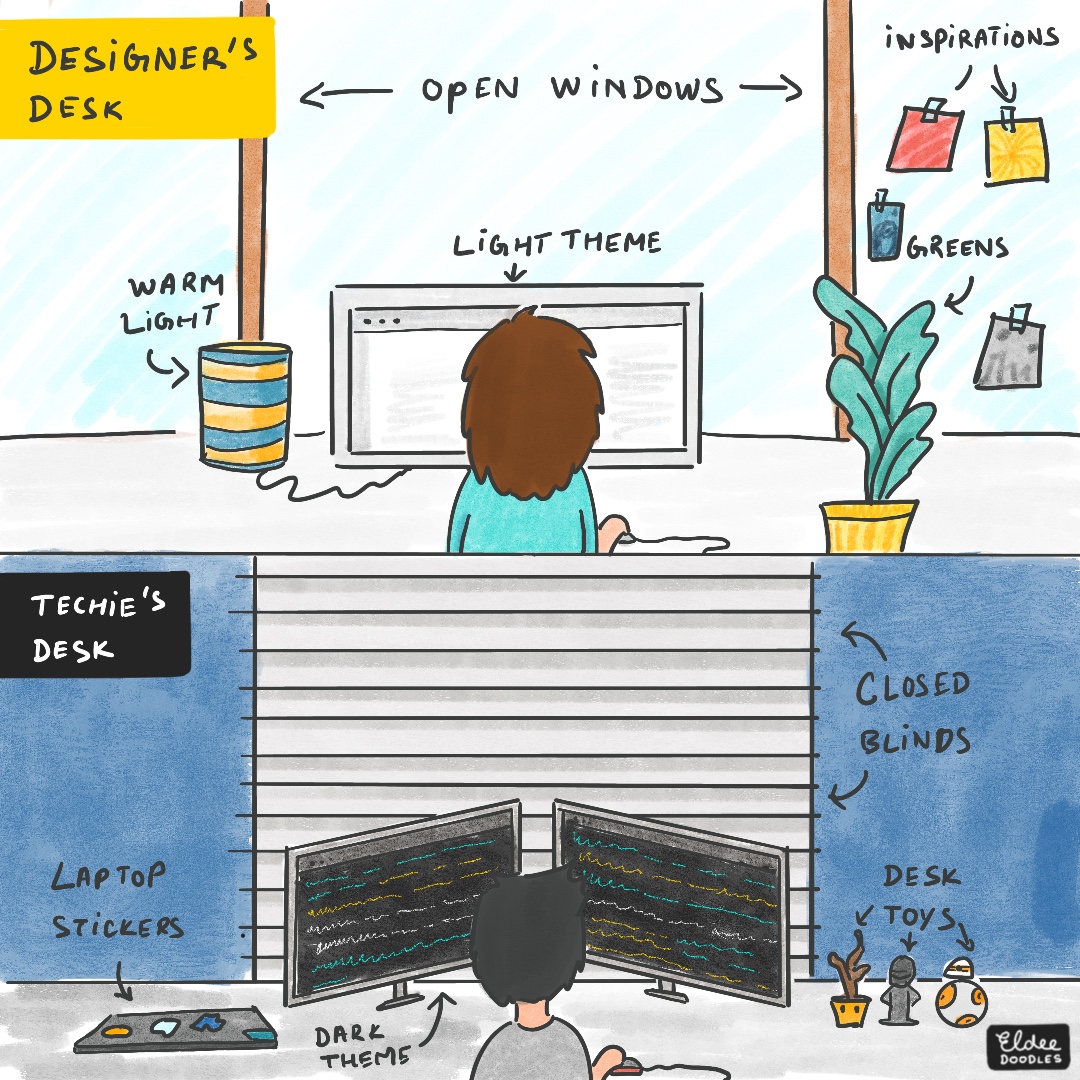 DESiGNER'S
DESK
← OPEN WiNDOWS →
iNSPiRATiONS
GREENS
LiGHT THEME
WARM
LiGHT
TECHiE'S
DESK
CLOSED
BLiNDS
LAPTOP
STiCKERS
DESK
TOYS
DARK
THEME
Eldee
DOODLES